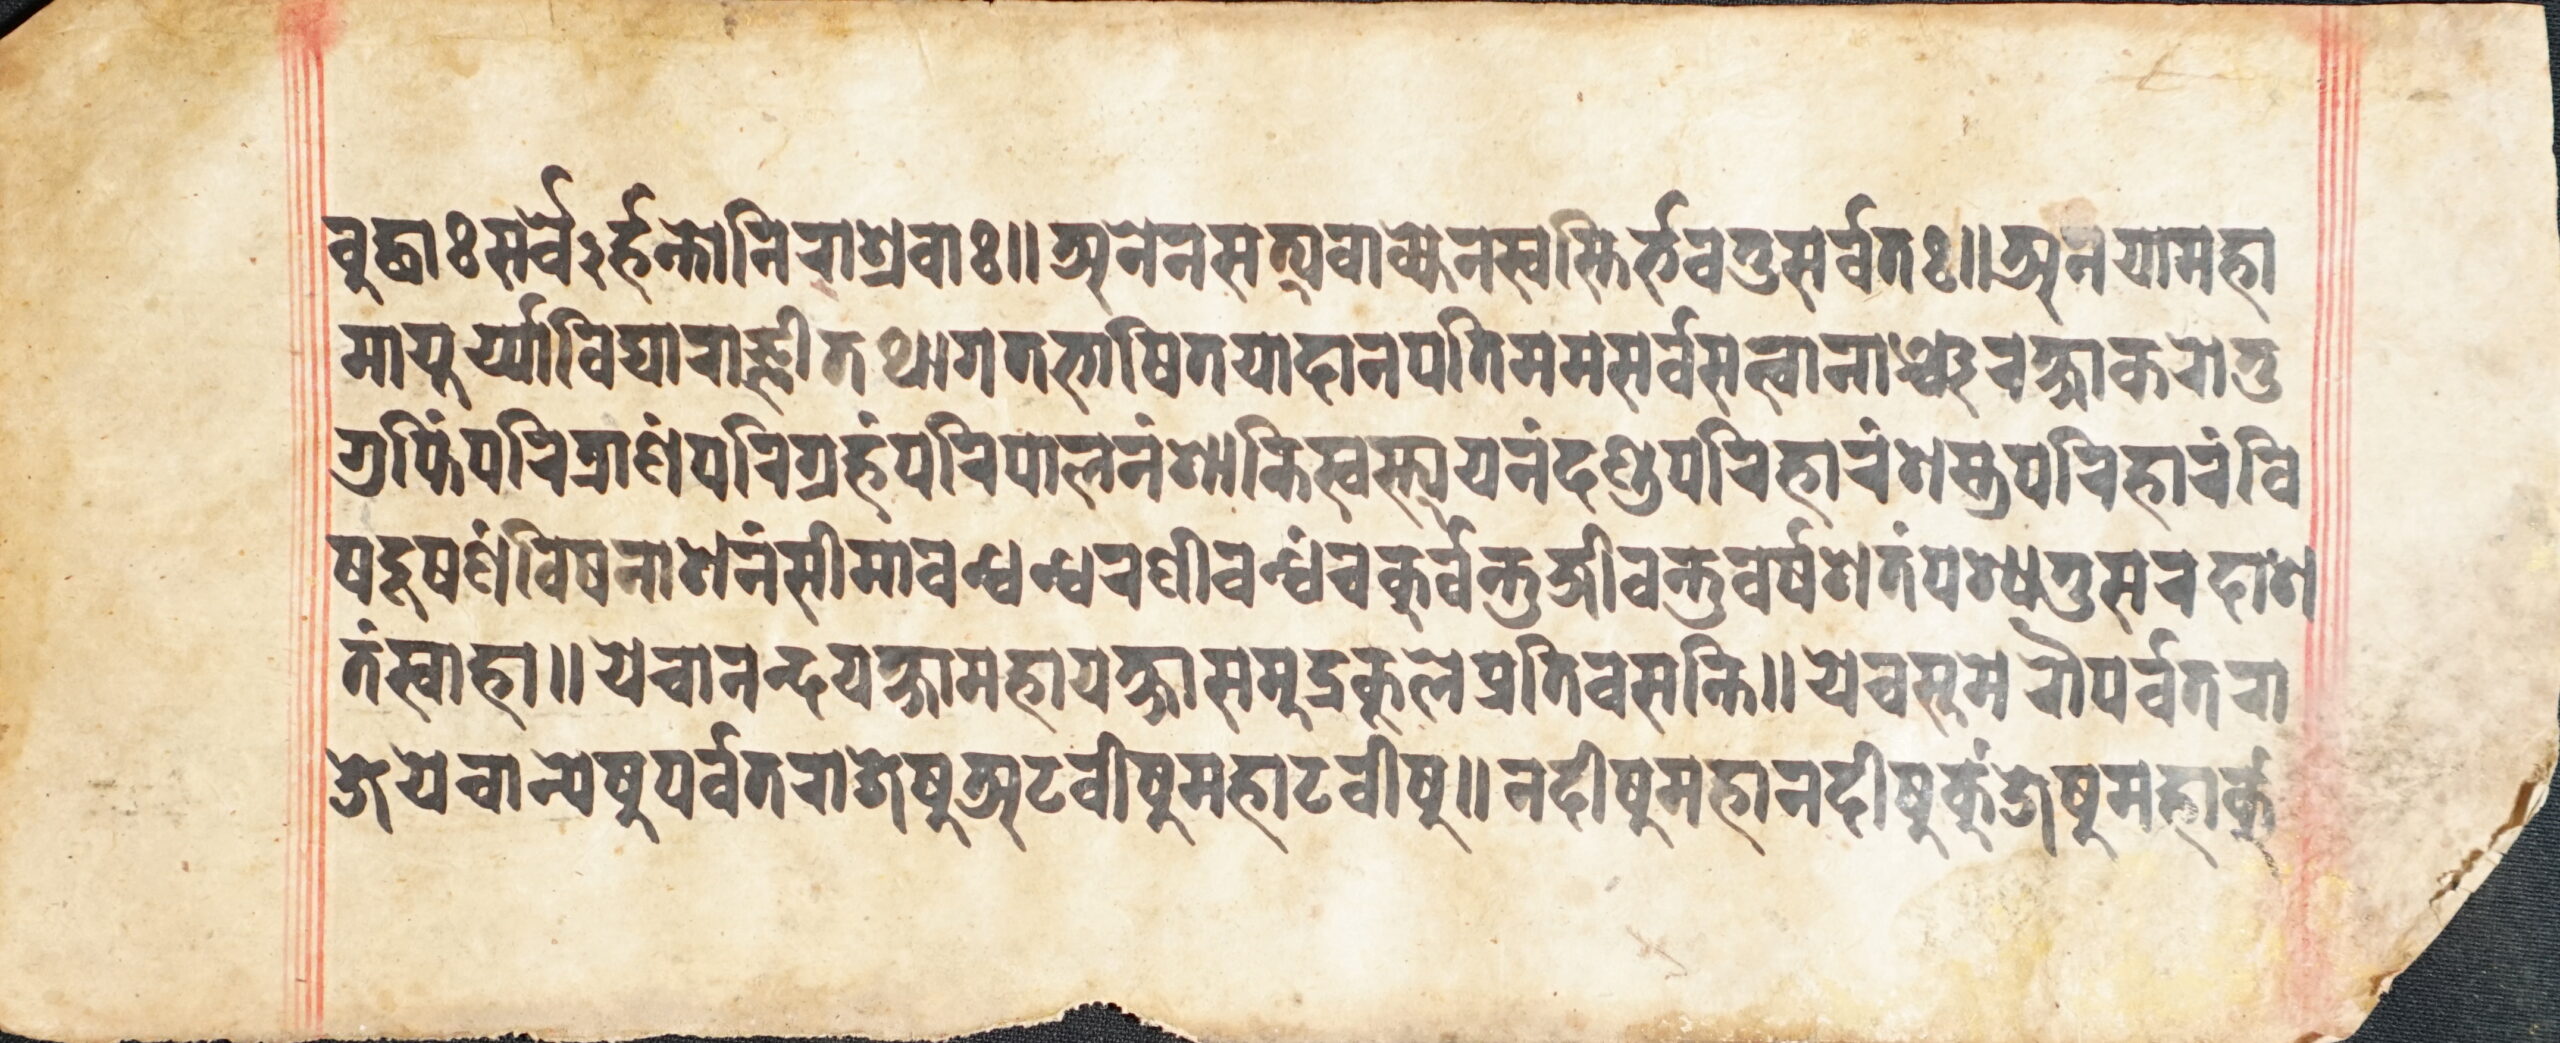 बुद्धाःसर्वेऽर्हन्तोनिराश्रवाः॥अनेनसत्यवाक्येनस्वस्तिर्भवतुसर्वतः॥अनयामहा
मायुर्य्याविद्याराज्ञीतथागतभाषितयादानपतिममसर्वसत्वानाञ्चरक्षाकरोतु
गुप्तिंपरित्राणंपरिग्रहंपरिपालनंशान्तिस्वस्त्ययनंदण्डपरिहारंशस्त्रपरिहारंवि
षदूषणंविषनाशनंसीमाबन्धन्धरणीबन्धंचकुर्वन्तुजीवन्तुवर्षशतंपश्यतुसरदाश
तंस्वाहा॥येचानन्दयक्षामहायक्षासमुद्रकूलेप्रतिवसन्ति॥येचसुमेरौपर्वतरा
जेयेचान्येषुपर्वतराजेषुअटवीषुमहाटवीषु॥नदीषुमहानदीषुकुंजेषुमहाकुं